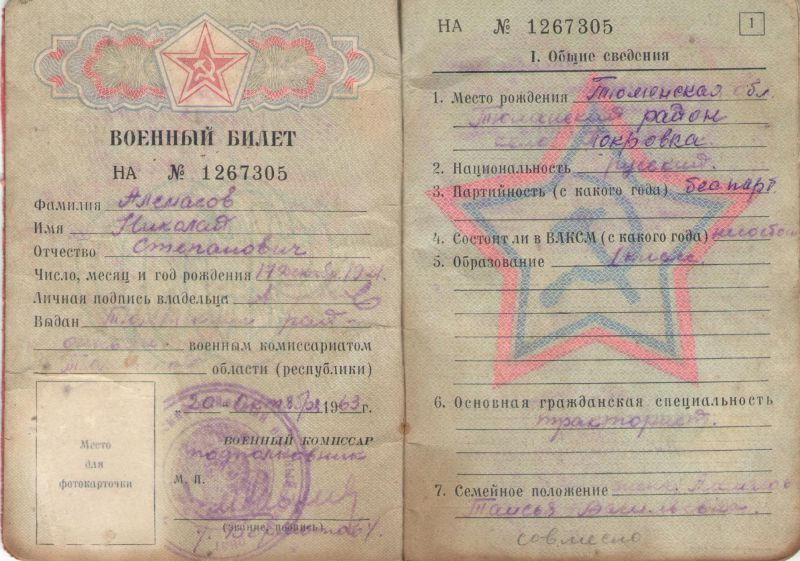 ВОЕННЫЙ БИЛЕТ
НА № 1267305
Фамилия Алемасов
Имя Николай
Отчество Степанович
Число, месяц и год рождения 17 декабр. 19
Личная подпись владельца
Выдан
военным комиссариатом
области (республики)
Место
для
фотокарточки
„20 Октября 1963 г.
ВОЕННЫЙ КОМИССАР
подполковник
М. П.
(звание, подпись)
НА № 1267305
1
I. Общие сведения
1. Место рождения Тюменская обл.
Тюменский район
село Покровка
2. Национальность русский.
3. Партийность (с какого года) беспарт.
4. Состоит ли в ВЛКСМ (с какого года)
5. Образование
6. Основная гражданская специальность
тракторист.
7. Семейное положение жена
Таисья Васильевна.
совместно